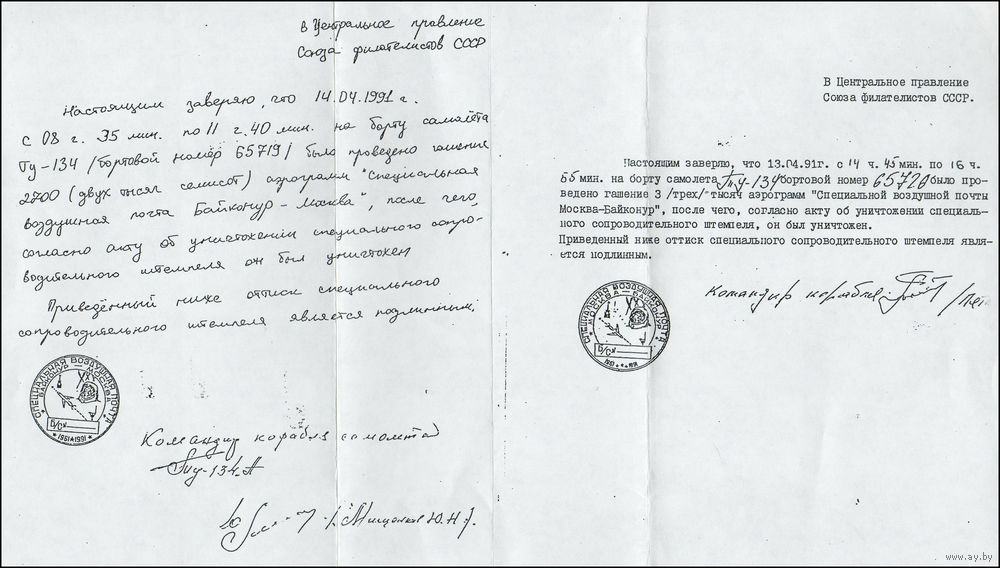 В Центральное правление
Союза филателистов СССР
Настоящим заверяю, что 14.04.1991 г.
с 08 г. 35 мин. по 11 г. 40 мин. на борту самолёта
Ту-134 /бортовой номер 65719/ было проведено гашение
2700 (двух тысяч семисот) аэрограмм "Специальная
воздушная почта Байконур-Москва", после чего,
согласно акту об уничтожении специального сопро-
водительного штемпеля он был уничтожен
Приведённый ниже оттиск специального
сопроводительного штемпеля является подлинным.
СПЕЦИАЛЬНАЯ ВОЗДУШНАЯ ПОЧТА
БАЙКОНУР — МОСКВА
Б/СУ
* 1961 * 1991 *
Командир корабля самолёта
Ту-134А
/Мищенко Ю.Н./
В Центральное правление
Союза филателистов СССР.
Настоящим заверяю, что 13.04.91г. с 14 ч. 45 мин. по 16 ч.
55 мин. на борту самолета Ту-134 бортовой номер 65720 было про-
ведено гашение 3 /трех/ тысяч аэрограмм "Специальной воздушной почты
Москва-Байконур", после чего, согласно акту об уничтожении специаль-
ного сопроводительного штемпеля, он был уничтожен.
Приведенный ниже оттиск специального сопроводительного штемпеля явля-
ется подлинным.
СПЕЦИАЛЬНАЯ ВОЗДУШНАЯ ПОЧТА
МОСКВА — БАЙКОНУР
Б/СУ
Командир корабля
www.ay.by